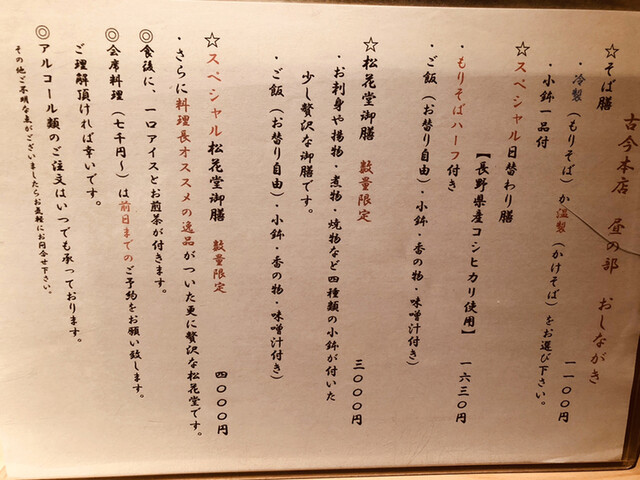 古今本店 昼の部 おしながき
☆そば膳 一一〇〇円
・冷製(もりそば)か温製(かけそば)をお選び下さい。
・小鉢一品付
☆スペシャル日替わり膳 一六三〇円
【長野県産コシヒカリ使用】
・もりそばハーフ付き
・ご飯(お替り自由)・小鉢・香の物・味噌汁付き)
☆松花堂御膳 数量限定 三〇〇〇円
・お刺身や揚物・煮物・焼物など四種類の小鉢が付いた
少し贅沢な御膳です。
・ご飯(お替り自由)・小鉢・香の物・味噌汁付き)
☆スペシャル松花堂御膳 数量限定 四〇〇〇円
・さらに料理長オススメの逸品がついた更に贅沢な松花堂です。
◎食後に、一口アイスとお煎茶が付きます。
◎会席料理(七千円~)は前日までのご予約をお願い致します。
ご理解頂ければ幸いです。
◎アルコール類のご注文はいつでも承っております。
その他ご不明な点がございましたらお気軽にお問合せ下さい。